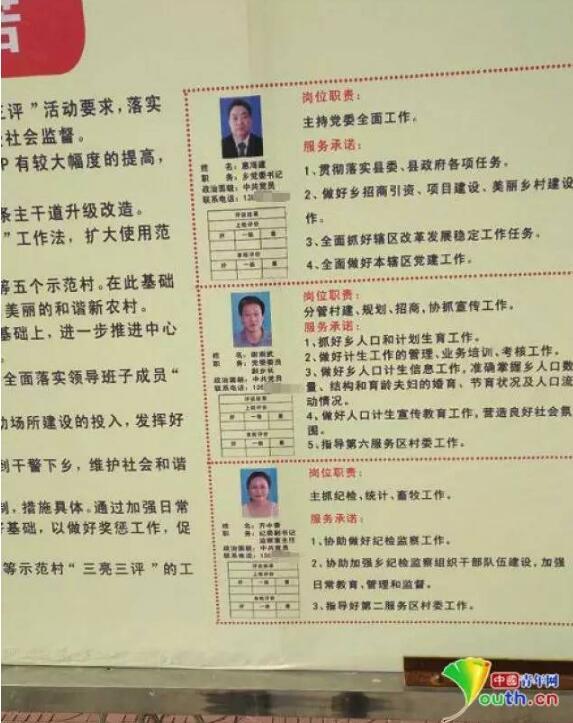 三评”活动要求，落实
社会监督。
P有较大幅度的提高，
条主干道升级改造。
”工作法，扩大使用范
等五个示范村。在此基础
美丽的和谐新农村。
基础上，进一步推进中心
全面落实领导班子成员“
动场所建设的投入，发挥好
到干警下乡，维护社会和谐
制，措施具体。通过加强日常
好基础，以做好奖惩工作，促
等示范村“三亮三评”的工
姓 名：惠海建
职 务：乡党委书记
政治面貌：中共党员
联系电话：13
评议结果
上级评价
好 一般 差
岗位职责：
主持党委全面工作。
服务承诺：
1、贯彻落实县委、县政府各项任务。
2、做好乡招商引资、项目建设、美丽乡村建设
作。
3、全面抓好辖区改革发展稳定工作任务。
4、全面做好本辖区党建工作。
姓 名：
职 务：党委委员
副乡长
政治面貌：中共党员
联系电话：13
评议结果
上级评价
好 一般 差
岗位职责：
分管村建、规划、招商，协抓宣传工作。
服务承诺：
1、抓好乡人口和计划生育工作。
2、做好计生工作的管理、业务培训、考核工作。
3、做好乡人口计生信息工作，准确掌握乡人口数
量、结构和育龄夫妇的婚育、节育状况及人口流
动情况。
4、做好人口计生宣传教育工作，营造良好社会氛
围。
5、指导第六服务区村委工作。
姓 名：
职 务：纪委副书记
监察室主任
政治面貌：中共党员
联系电话：13
评议结果
上级评价
好 一般 差
岗位职责：
主抓纪检，统计、畜牧工作。
服务承诺：
1、协助做好纪检监察工作。
2、协助加强乡纪检监察组织干部队伍建设，加强
日常教育、管理和监督。
3、指导好第二服务区村委工作。
中國青年网
Youth.cn